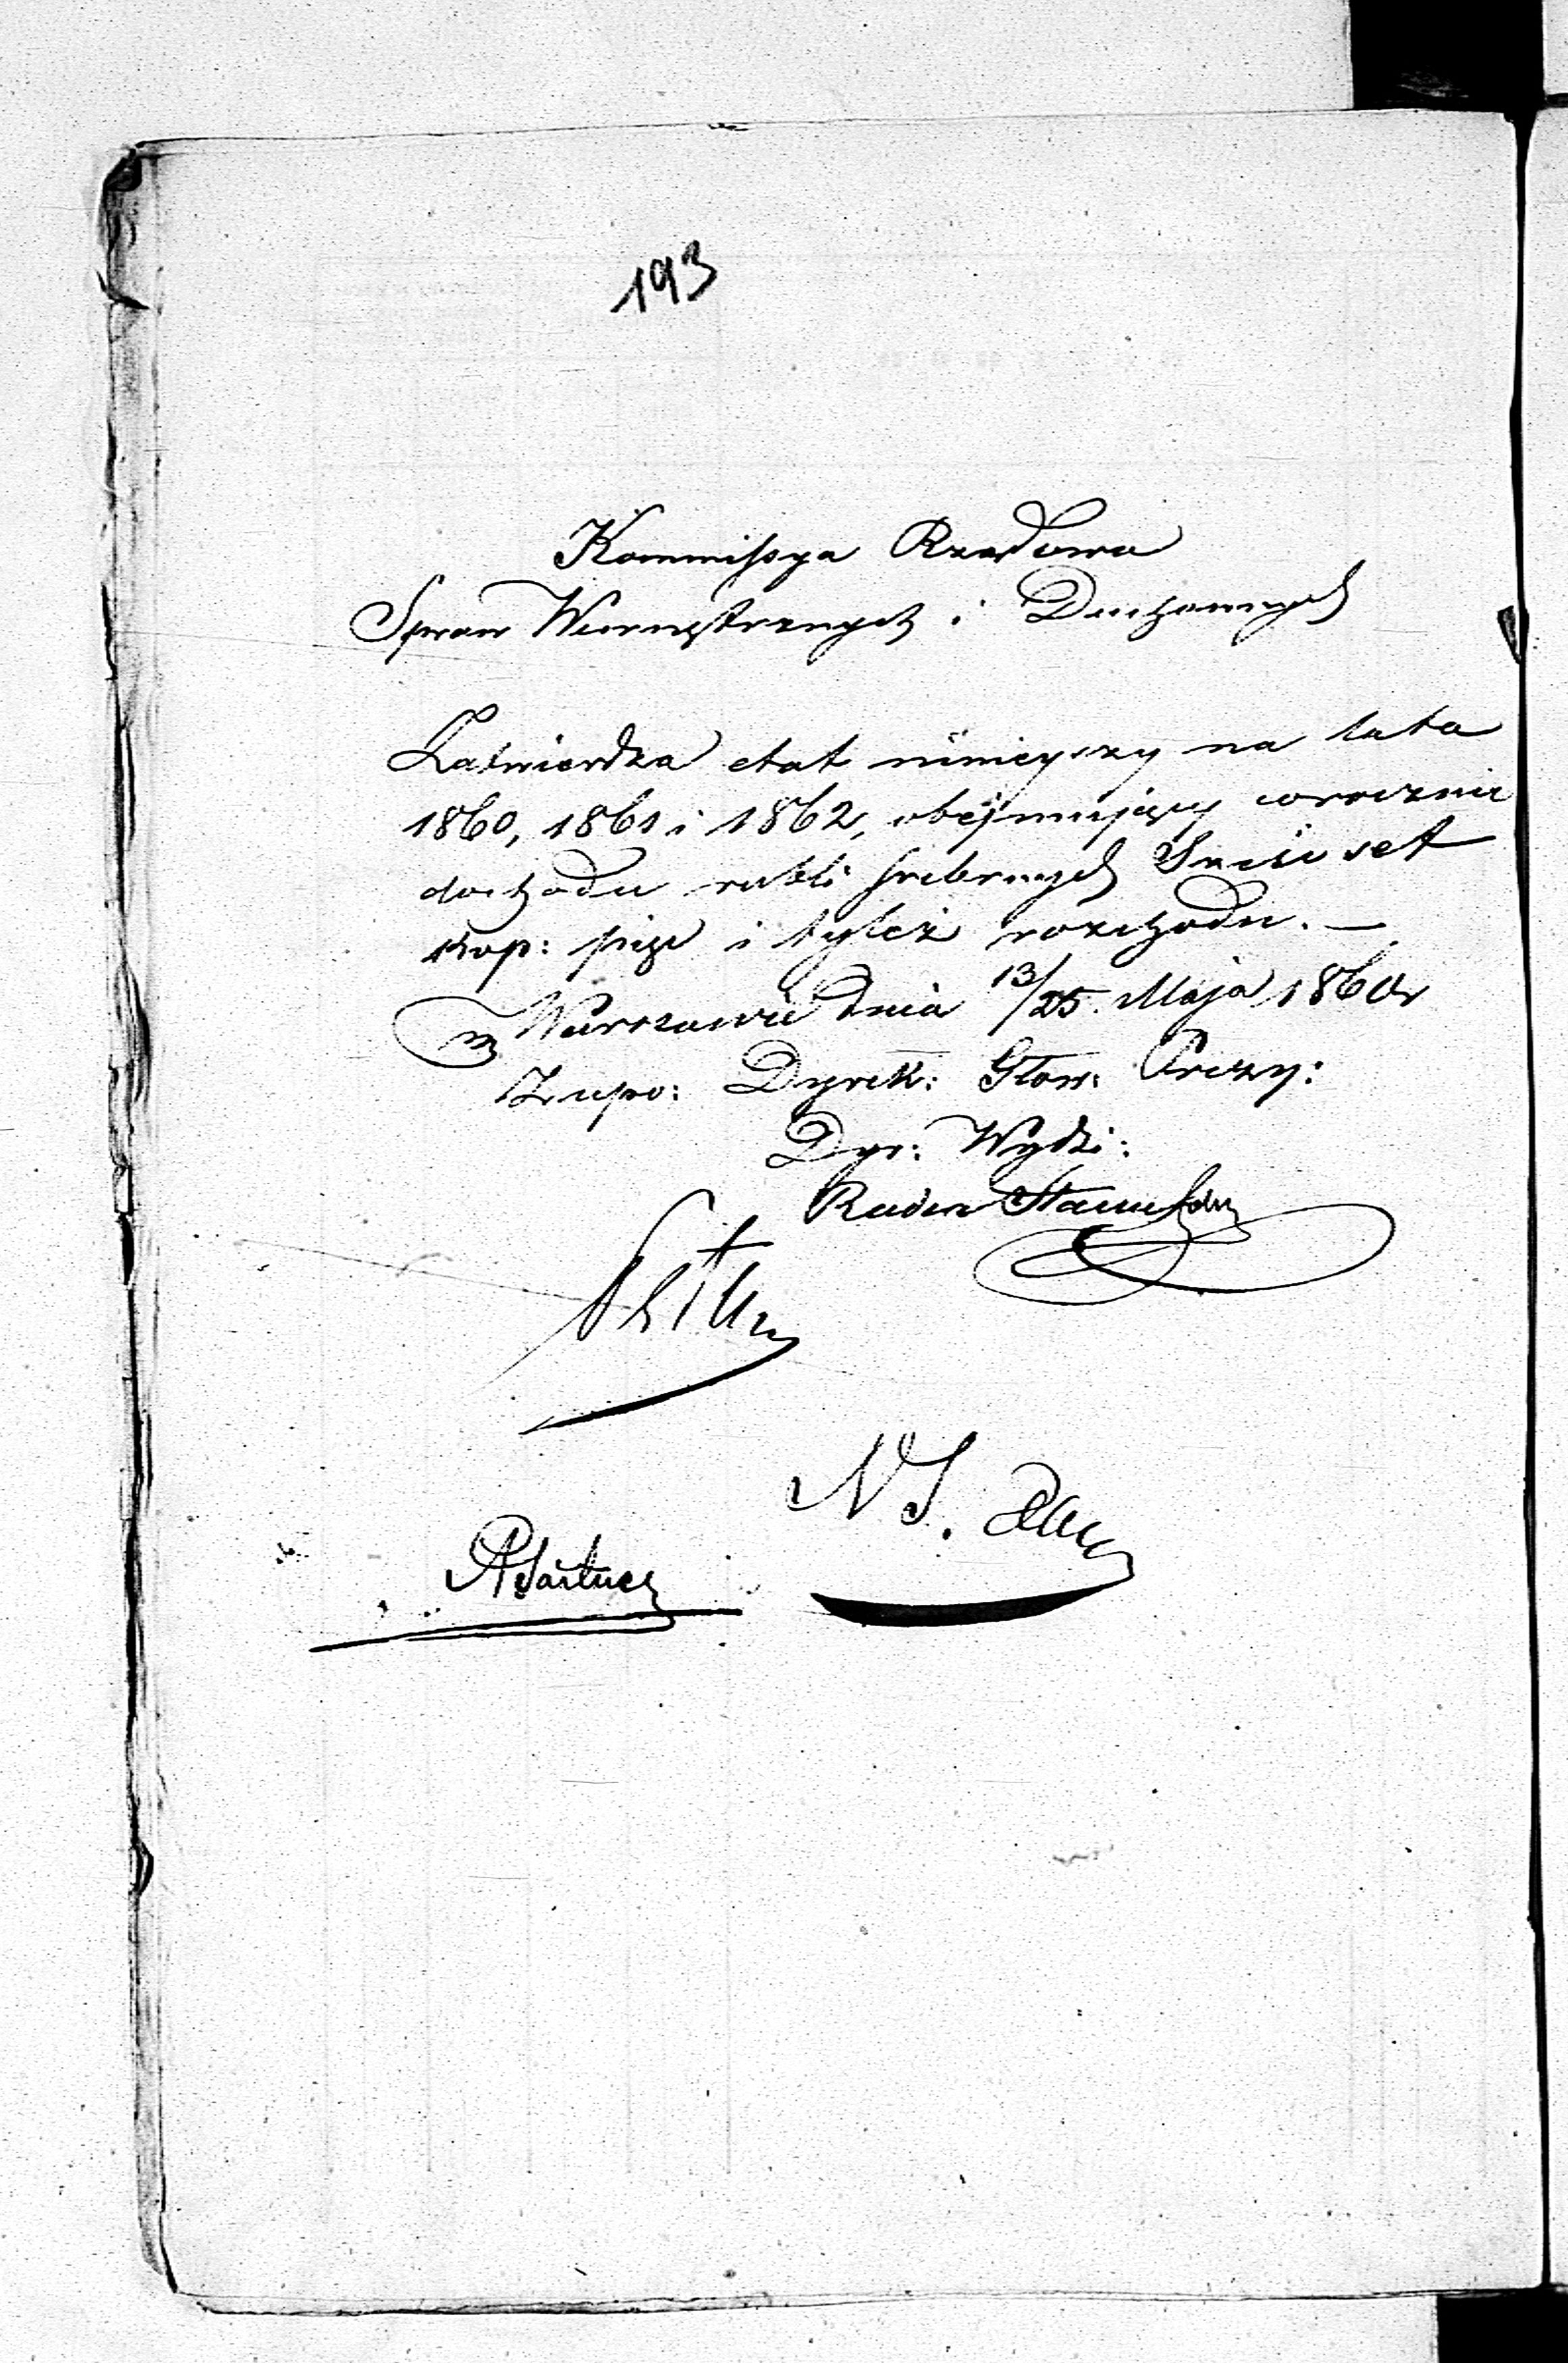 193
Kommissya Rządowa
Spraw Wewnętrznych i Duchownych
Zatwierdza etat niniejszy na lata
1860, 1861 i 1862, obejmujący corocznie
dochodu rubli srebrnych Sześćset
kop: pięć i tyleż rozchodu. —
w Warszawie dnia 13/25. Maja 1860 r
Z upo: Dyrek: Głów: Prezy:
Dyr: Wydzi:
Radca Stanu